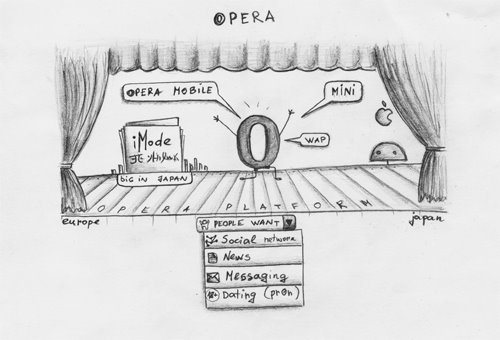 OPERA
OPERA MOBILE
MINI
WAP
iMode
biG IN JAPAN
OPERA PLATFORM
europe
japan
PEOPLE WANT
Social network
News
Messaging
18+ Dating (pr0n)